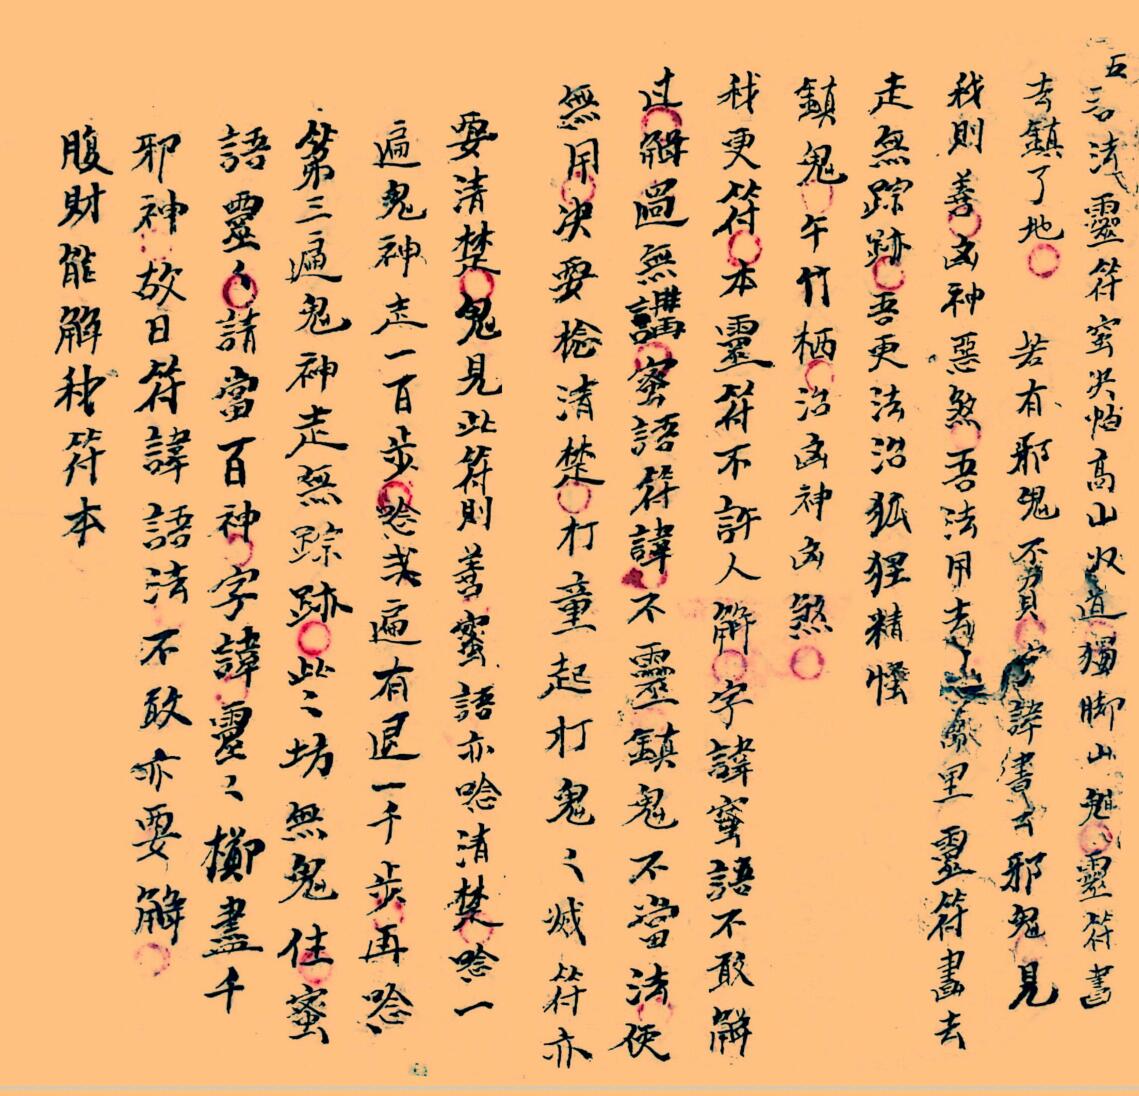 五言法靈符密决怕高山水道獨脚山魈靈符書
去鎮了地 若有邪鬼不員字諱書去邪鬼見
我則善凶神惡煞吾法用去萬里靈符畵去
走無踪跡吾更法治狐狸精怪
鎮鬼午竹栖治凶神凶煞
我更符本靈符不許人解字諱蜜語不敢解
过解過無講蜜語符諱不靈鎮鬼不當法使
無用决要棯清楚打童起打鬼〻滅符亦
要清楚鬼見此符則善蜜語亦唸清楚唸一
遍鬼神走一百步唸弍遍有退一千步再唸
第三遍鬼神走無踪跡此〻坊無鬼住蜜
語靈〻請當百神字諱靈〻擲盡千
邪神故日符諱語法不敢亦要解
腹財能解秘符本